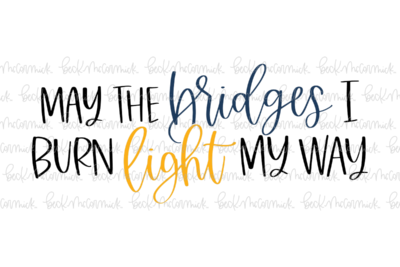 MAY THE bridges I
BURN light MY WAY